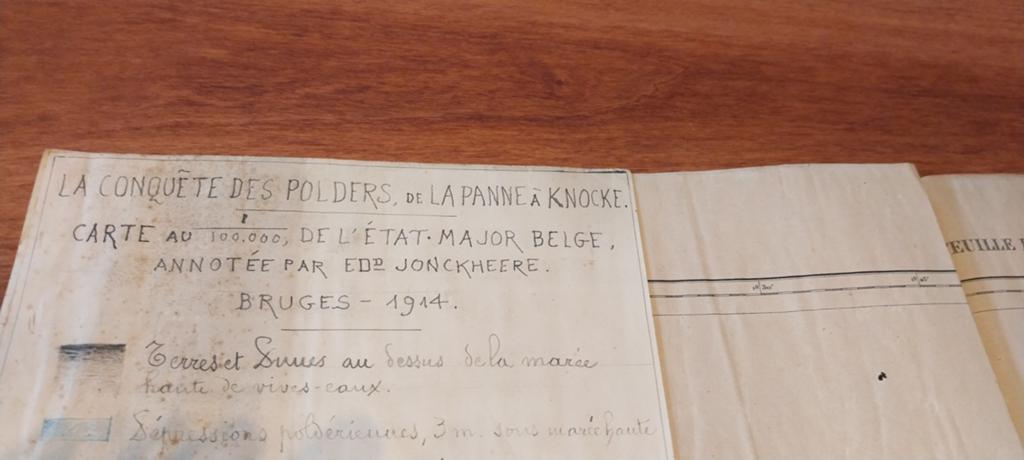 LA CONQUÊTE DES POLDERS, DE LA PANNE À KNOCKE.
CARTE AU 1/100.000, DE L'ÉTAT-MAJOR BELGE,
ANNOTÉE PAR EDD JONCKHEERE.
BRUGES - 1914.
Terres et Dunes au dessus de la marée
haute de vives-eaux.
Dépressions poldériennes, 3 m. sous marée haute
FEUILLE